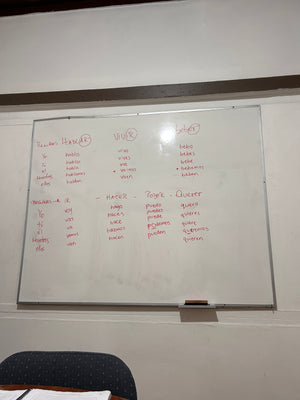 HablAR VivIR beber
Yo hablo vivo bebo
tú hablas vives bebes
él habla vive bebe
hablamos vivimos bebemos
ellos hablan viven beben
IR - HACER - Poder - Querer
Yo voy hago puedo quiero
tú vas haces puedes quieres
él va hace puede quiere
vamos
ellos van hacen pueden quieren